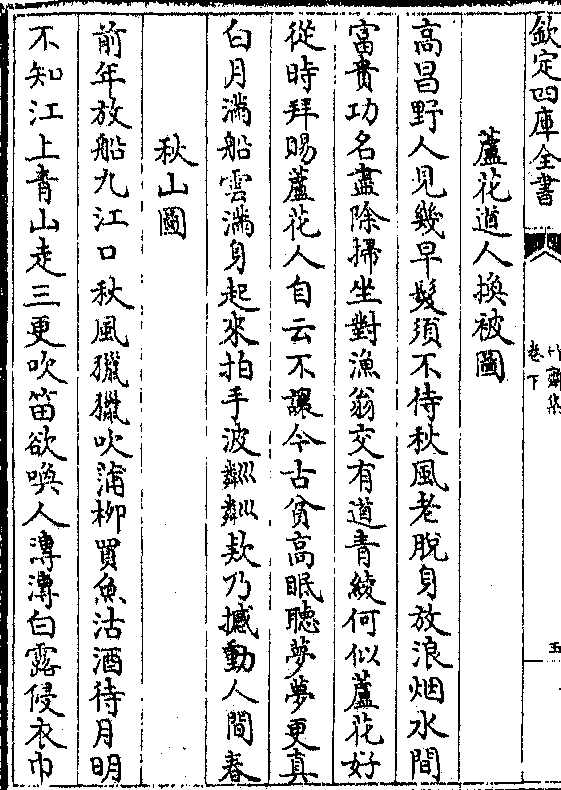 欽定四庫全書
竹齋集
卷下
五
蘆花道人換被圖
高昌野人見幾早髮須不待秋風老脫身放浪烟水間
富貴功名盡除掃坐對漁翁交有道青綾何似蘆花好
從時拜賜蘆花人自云不讓今古貧高眠聽夢夢更真
白月滿船雲滿身起來拍手波粼粼欵乃撼動人間春
秋山圖
前年放船九江口秋風獵獵吹蒲柳買魚沽酒待月明
不知江上青山走三更吹笛欲喚人漙漙白露侵衣巾